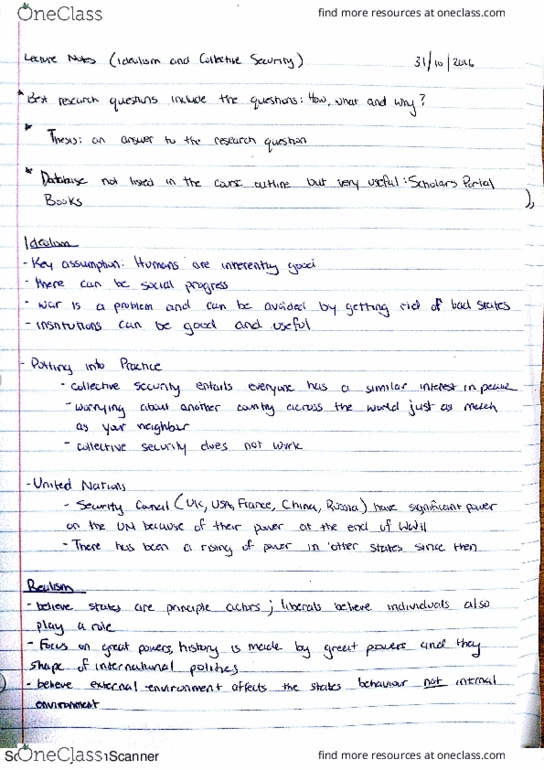 OneClass find more resources at oneclass.com
Lecture Notes (Idealism and Collective Security) 31/10/2016
* Best research questions include the questions: How, what and why?
* Thesis: an answer to the research question
* Database not listed in the course outline but very useful: Scholars Portal
Books
Idealism
- Key assumption: Humans are inherently good
- there can be social progress
- war is a problem and can be avoided by getting rid of bad states
- institutions can be good and useful
- Putting into Practice
- collective security entails everyone has a similar interest in peace
- worrying about another country across the world just as much
as your neighbor
- collective security does not work
- United Nations
- Security Council (UK, USA, France, China, Russia) have significant power
on the UN because of their power at the end of WWII
- There has been a rising of power in other states since then
Realism
- believe states are principle actors; liberals believe individuals also
play a role
- Focus on great powers, history is made by great powers and they
shape of international politics
- believe external environment affects the states behaviour not internal
environment
OneClass Scanner find more resources at oneclass.com